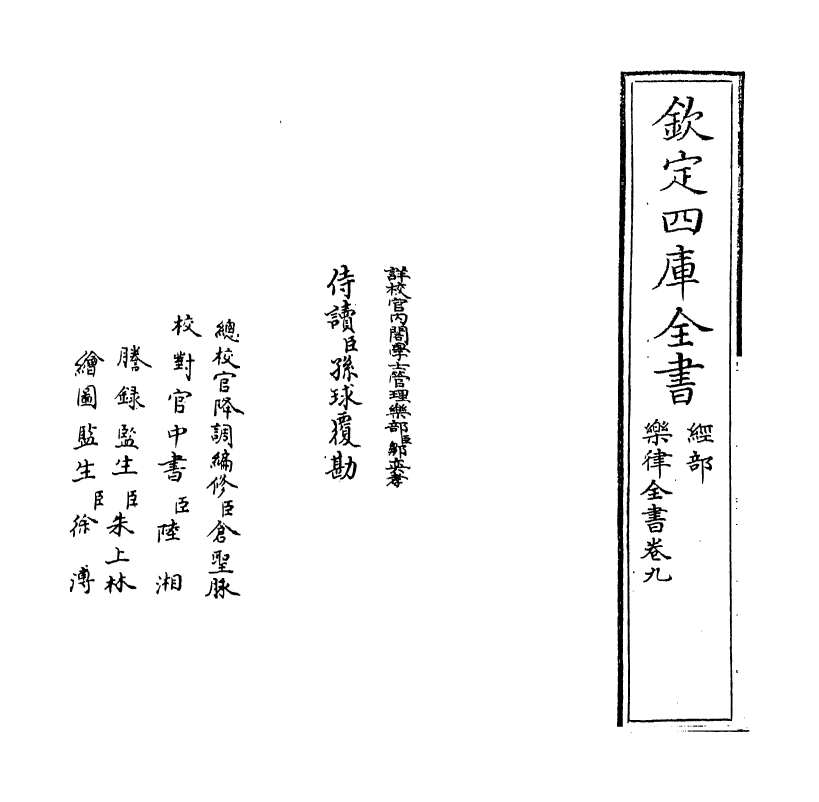 欽定四庫全書
經部
樂律全書卷九
詳校官內閣學士管理樂部臣鄒奕孝
侍讀臣孫球覆勘
總校官降調編修臣倉聖脈
校對官中書臣陸湘
謄録監生臣朱上林
繪圖監生臣徐溥